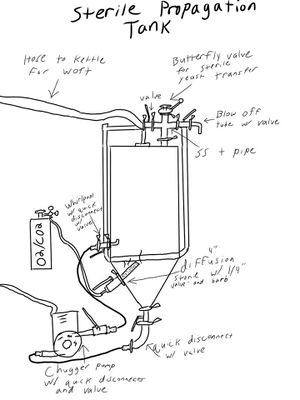 Sterile Propagation
Tank
Hose to Kettle
For Wort
valve
Butterfly valve
for sterile
yeast transfer
Blow off
tube w/ valve
SS + pipe
Whirlpool
w/ quick
disconnect
w/ valve
O2/CO2
4"
diffusion
stone w/ 1/4"
valve and barb
Quick disconnect
w/ valve
Chugger pump
w/ quick disconnects
and valve